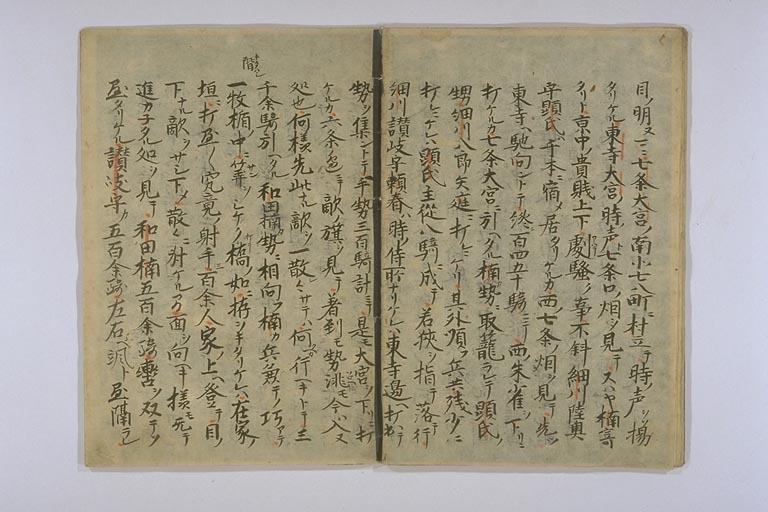 目ノ明ヌ三七条大宮ノ南北七八町ニ村立テ時声ヲソ揚
タリケル東寺大宮ノ時声七条口ノ烟ヲ見テスハヤ楠寄
タリト京中ノ貴賎上下劇騒ノ事不斜細川陸奥
守顕氏ハ千本ニ宿メ居タリケルカ西七条ノ烟ヲ見テ先ツ
東寺ヘ馳向ントテ終百四五十騎ニテ西朱雀ヲ下リニ
打ケルカ七条大宮ニ引ヘタル楠勢ニ取籠ラレテ顕氏ノ
甥細川八郎矢庭ニ打レニケリ其外頼ノ兵共残少ニ
打レニケレハ顕氏主従八騎ニ成テ若狭ヲ指テ落行
細川讃岐守頼春ハ時ノ侍所ナリケレハ東寺辺ヘ打出テ
勢ヲ集ントテ手勢三百騎計ニテ是モ大宮ヲ下リニ打
ケルカ六条辺ニテ敵ノ旗ヲ見テ着到モ勢洮モ今ハ入ヌ
処也何様先此ナル敵ヲ一散々サテハ何ヘ行ヘキトテ三
千余騎引ヘタル和田楠勢ニ相向フ楠カ兵兼テ巧アテ
一枚楯ノ中ノ算ヲシケク橋ノ如ニ拵ヘキタリケレハ在家ノ
垣ニ打並々究竟ノ射手三百余人家ノ上ヘ登テ目ノ
下ナル敵ヲサシ下メ散々ニ射ケル間面ヲ向ヘキ様モ无テ
進カネタル処ヲ見テ和田楠五百余騎轡ヲ双テソ
蒐タリケル讃岐守カ五百余騎左右ヘ颯ト蒐隔ラ